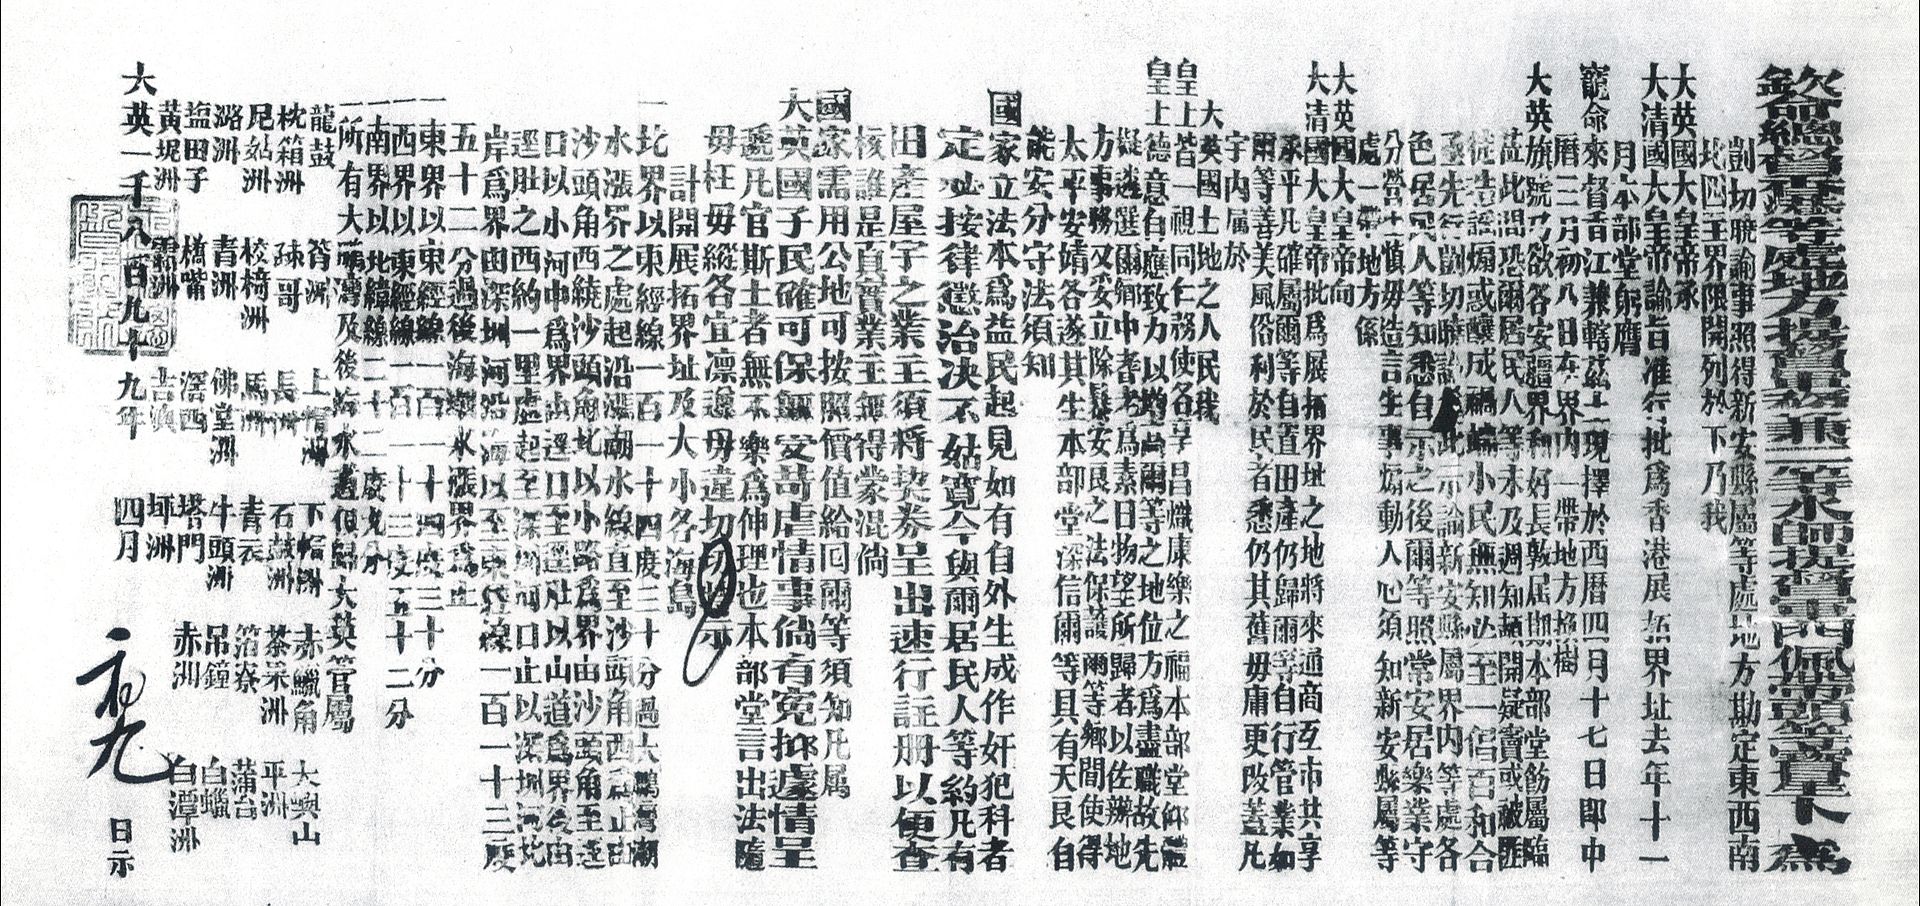 欽命總督香港等處地方提督軍務兼一等水師提督雲賞佩帶頭等寶星卜 為
剴切曉諭事照得新安縣屬等處地方勘定東西南
北四至界限開列於下乃我
大英國大皇帝承
大清國大皇帝諭旨准行批為香港展拓界址去年十一
月本部堂躬膺
寵命來督香江兼轄茲土現擇於西曆四月十七日即中
曆三月初八日在界內一帶地方換樹
大英旗號乃欲各安疆界和好長敦屆期本部堂飭屬臨
蒞此間恐爾居民人等未及週知輒開疑竇或被匪
徒造謠煽惑釀成禍端小民無知至一倡百和合
亟先行剴切曉諭此示諭新安縣屬界內等處各
色居民人等知悉自示之後爾等照常安居樂業守
分營生慎毋造言生事煽動人心須知新安縣屬等
處一帶地方係
大英國大皇帝向
大清國大皇帝批為展拓界址之地將來通商互市共享
承平凡確屬爾等自置田產仍歸爾等自行管業如
爾等善美風俗利於民者悉仍其舊毋庸更改蓋凡
宇內屬於
大英國土地之人民我
皇上皆一視同仁務使各享昌熾康樂之福本部堂仰體
皇上德意自應致力以爾等之地位方為盡職故先
擬遴選爾鄉中耆老為素日物望所歸者以佐辦地
方事務又妥立除暴安良之法保護爾等鄉間使得
太平安靖各遂其生本部堂深信爾等具有天良自
能安分守法須知
國家立法本為益民起見如有自外生成作奸犯科者
定必按律懲治決不姑寬今與爾居民人等約凡有
田產屋宇之業主須將契券呈出速行註冊以便查
核誰是真實業主無得蒙混倘
國家需用公地可按照價值給回爾等須知凡屬
大英國子民確可保無受苛虐情事倘有冤抑遽情呈
遞凡官斯土者無不樂為伸理也本部堂言出法隨
毋枉毋縱各宜凜遵毋違切切特示
計開展拓界址及大小各海島
一北界以東經線一百一十四度三十分過大鵬灣潮
水漲界之處起沿漲潮水線直至沙頭角西為止由
沙頭角西繞沙頭角北以小路為界由沙頭角至逕
口以小河中為界由逕口至逕肚以山道為界後由
逕肚之西約一里處起至深圳河口止以深圳河北
岸為界由深圳河沿海以至東經線一百一十三度
五十二分過後海灣水漲界為止
一東界以東經線一百一十四度三十分
一西界以東經線一百一十三度五十二分
一南界以北緯線二十二度九分
一所有大鵬灣及後海水道俱歸大英管屬
龍鼓 筲洲 上磨洲 下磨洲 赤鱲角 大嶼山
枕箱洲 長洲 石鼓洲 茶果洲 平洲
尼姑洲 校椅洲 馬洲 青衣 箔寮 蒲台
潞洲 青洲 佛堂洲 牛頭洲 吊鐘 白蠟
塩田子 橋嘴 滘西 塔門 赤洲 白潭洲
黃坭洲 吉澳 坪洲
大英一千八百九十九年 四月 初九 日示